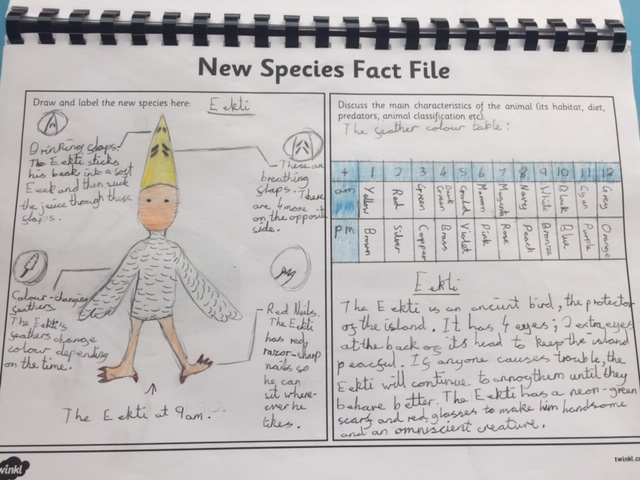 New Species Fact File
Draw and label the new species here:
Eekti
Drinking flaps:
The Eekti sticks
his beak into a soft
Eeek and then suck
the juice through those
flaps.
These are
breathing
flaps. There
are 4 more
on the opposite
side.
Colour-changing
feathers
The Eekti's
feathers change
colour depending
on the time.
Red Nails.
The Eekti
has red,
razor-sharp
nails so
he can
sit where-
ever he
likes.
The Eekti at 9am.
Discuss the main characteristics of the animal (its habitat, diet,
predators, animal classification etc).
The feather colour table:
+ 1 2 3 4 5 6 7 8 9 10 11 12
am Yellow Red Green Dark Green Gold Maroon Magenta Navy White Black Cyan Grey
pm Brown Silver Copper Brass Violet Pink Rose Peach Bronze Blue Purple Orange
Eekti
The Eekti is an ancient bird, the protector
of the island. It has 4 eyes; 2 extra eyes
at the back of its head to keep the island
peaceful. If anyone causes trouble, the
Eekti will continue to annoy them until they
behave better. The Eekti has a neon-green
scarf and red glasses to make him handsome
and an omniscient creature.
twinkl
twinkl.co